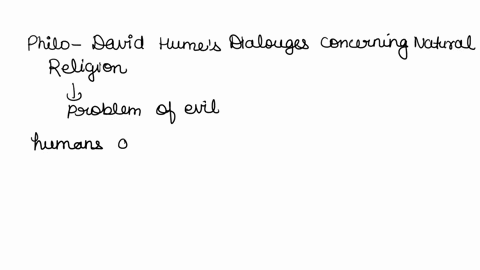 Philo- David Hume's Dialouges Concerning Natural
Religion
↓
problem of evil
humans o